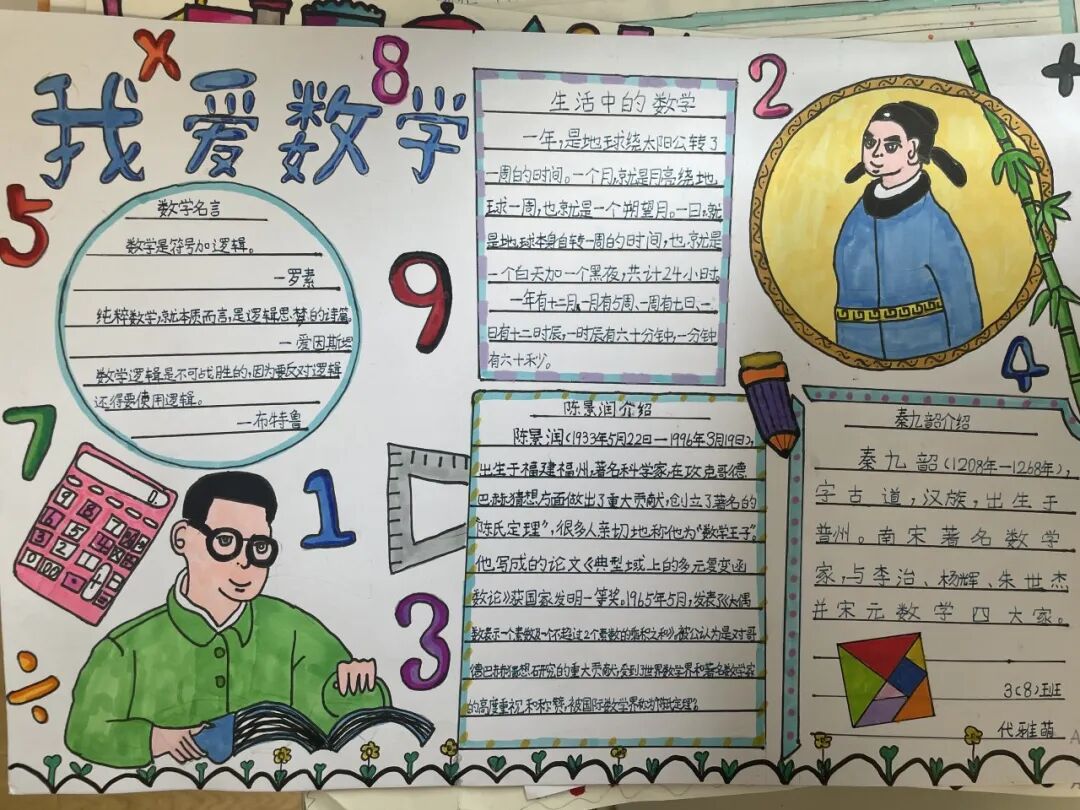 我爱数学
x
8
5
9
7
1
3
2
4
+
÷
数学名言
数学是符号加逻辑。
—罗素
纯粹数学,就本质而言,是逻辑思想的诗篇。
—爱因斯坦
数学逻辑是不可战胜的,因为要反对逻辑
还得要使用逻辑。
—布特鲁
生活中的数学
一年,是地球绕太阳公转了
一周的时间。一个月,就是月亮绕地
球一周,也就是一个朔望月。一日,就
是地球本身自转一周的时间,也就是
一个白天加一个黑夜,共计24小时。
一年有十二月,一月有5周、一周有七日、一
日有十二时辰,一时辰有六十分钟,一分钟
有六十秒。
陈景润介绍
陈景润(1933年5月22日—1996年3月19日),
出生于福建福州,著名科学家,在攻克哥德
巴赫猜想方面做出了重大贡献,创立了著名的
陈氏定理”,很多人亲切地称他为“数学王子”。
他写成的论文《典型域上的多元复变函
数论》获国家发明一等奖。1965年5月,发表了《大偶
数表示一个素数及一个不超过2个素数的乘积之和》,被公认为是对哥
德巴赫猜想研究的重大贡献,受到了世界数学界和著名数学家
的高度重视和称赞,被国际数学界称为“陈氏定理”。
秦九韶介绍
秦九韶(1208年—1268年),
字古道,汉族,出生于
普州。南宋著名数学
家,与李治、杨辉、朱世杰
并宋元数学四大家。
3(8)班
代雅萌